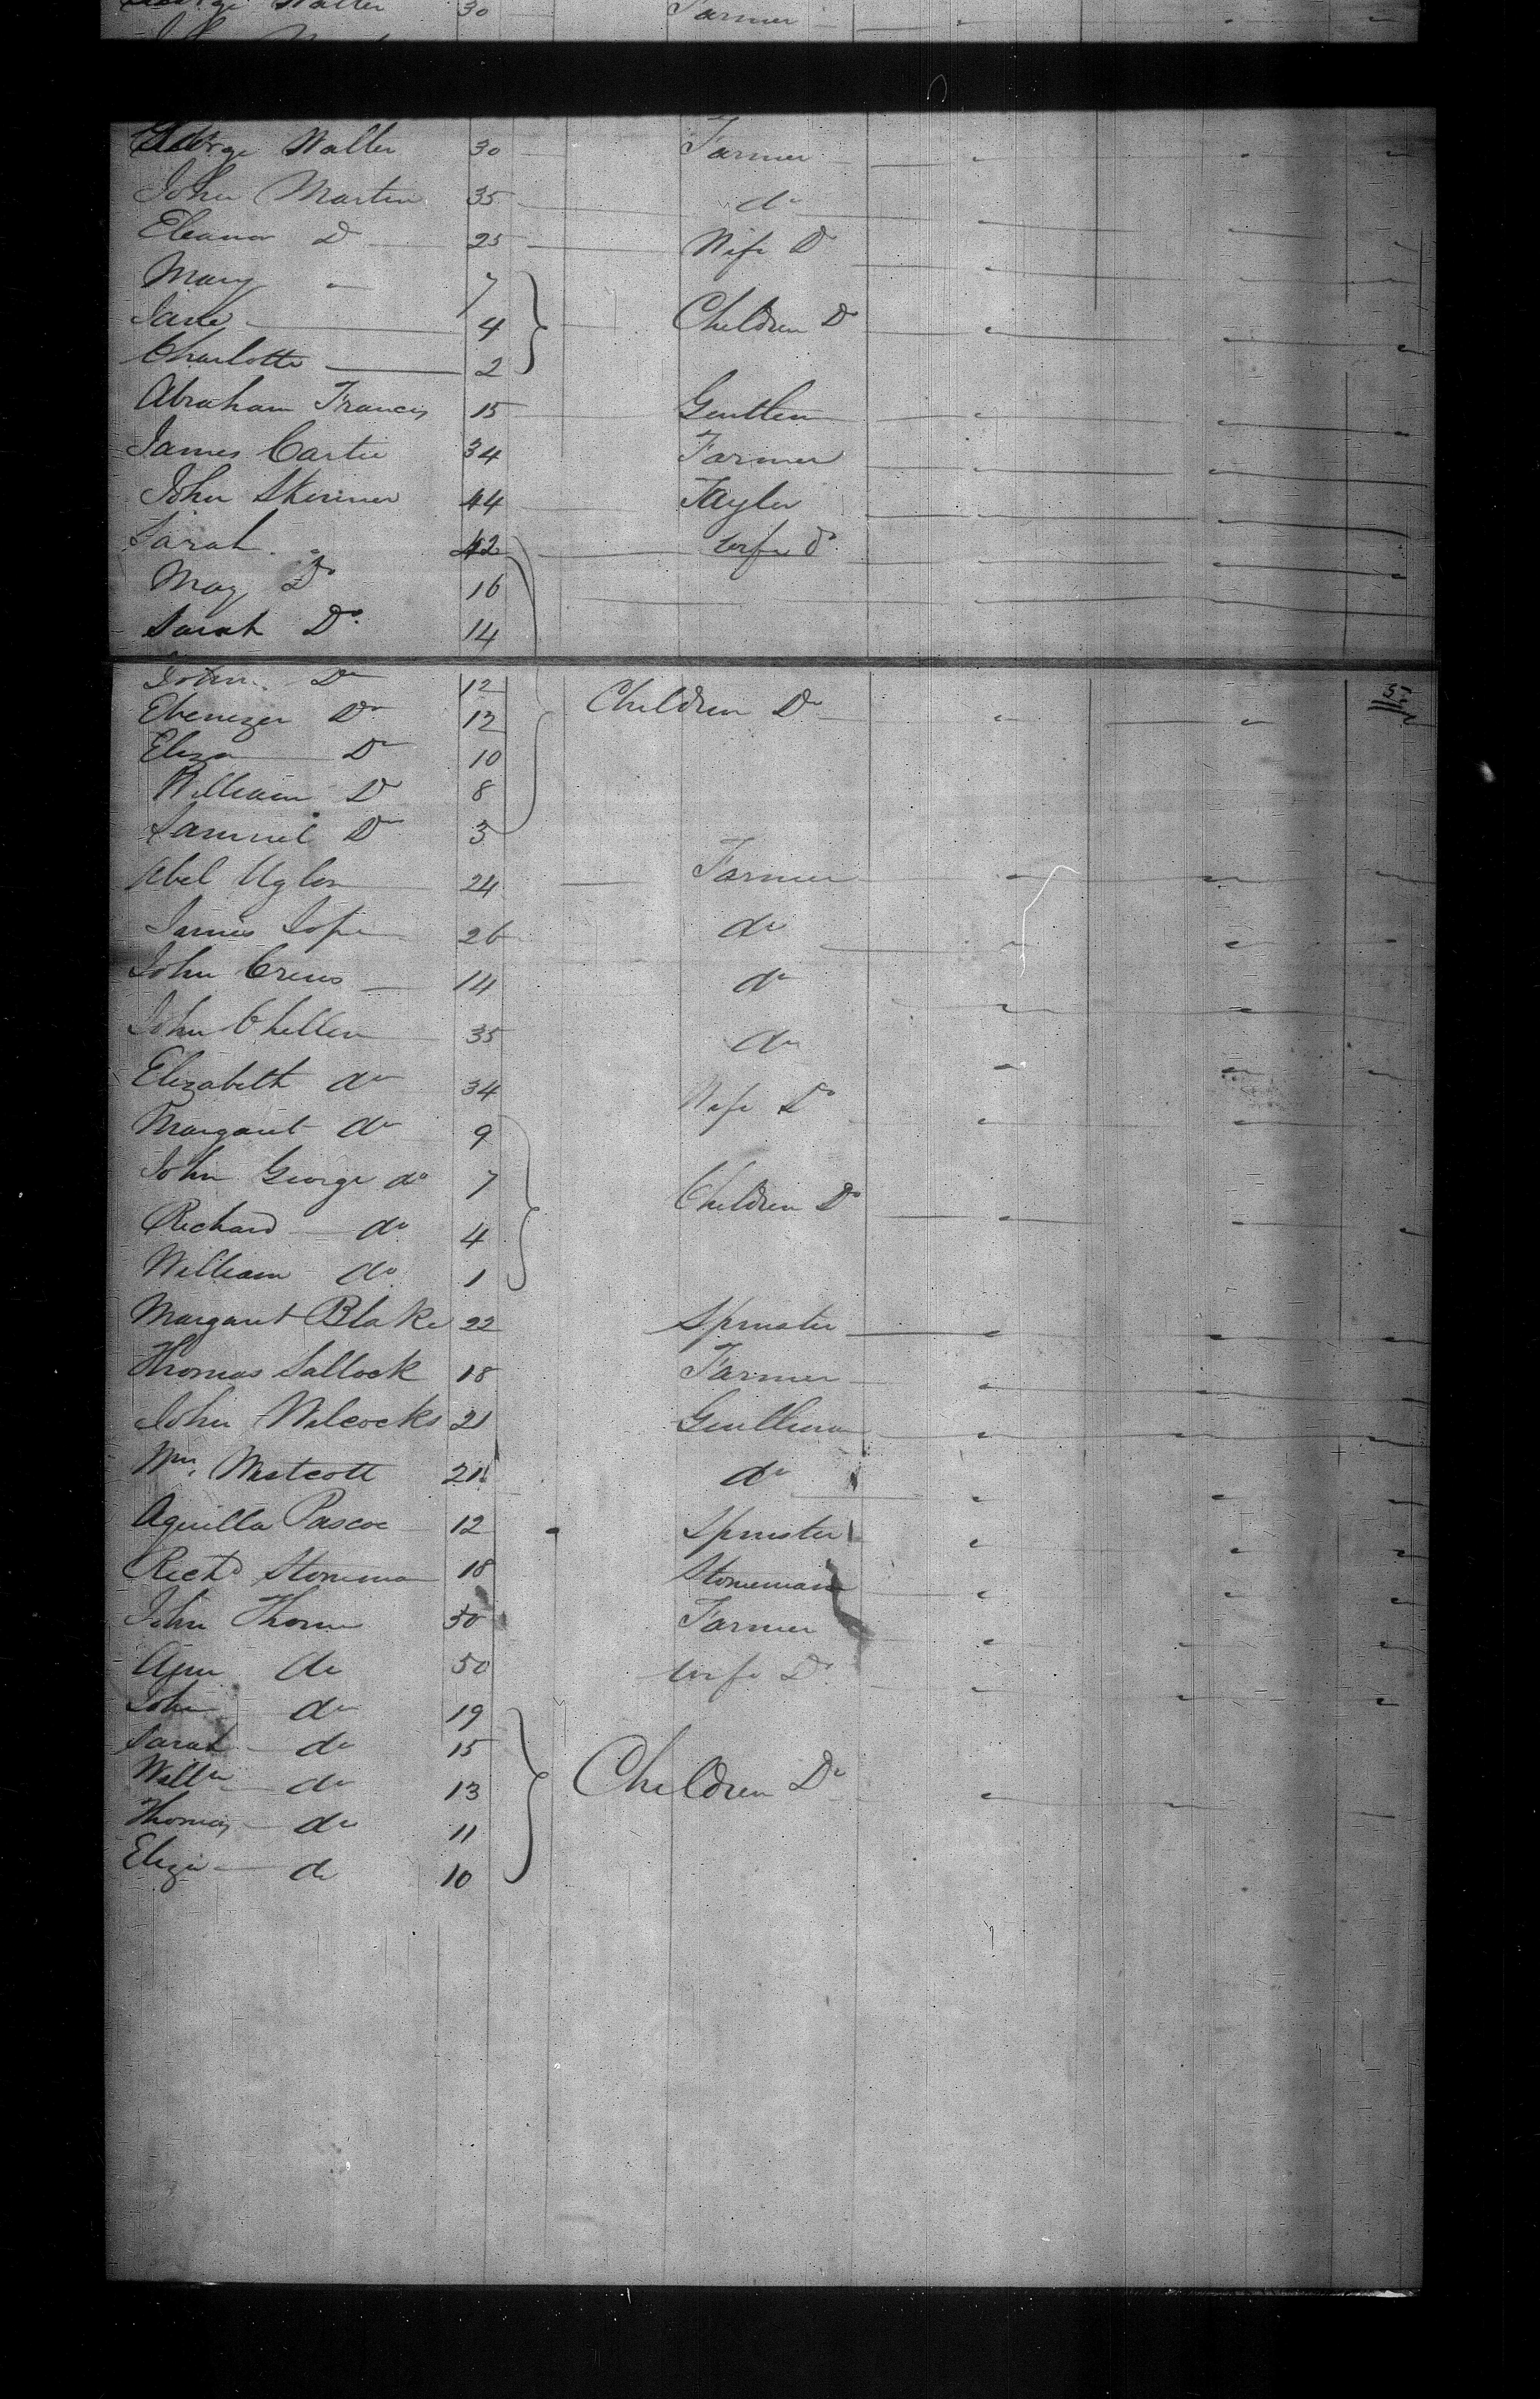 Walter 30 Farmer
George Walter 30 Farmer
John Martin 35 do
Eleanor Do 25 Wife Do
Mary " 7
Jane 4 Children Do
Charlotte 2
Abraham Francis 15 Gentlem
James Carter 34 Farmer
John Skinner 44 Taylor
Sarah " 42 wife do
May Do 16
Sarah Do 14
John Do 12
Ebenezer Do 12 Children Do
Eliza Do 10
William Do 8
Samuel Do 3
Abel Uglow 24 Farmer
James Jope 26 do
John Crews 14 do
John Chellew 35 do
Elizabeth do 34 Wife Do
Margaret do 9
John George do 7 Children Do
Richard do 4
William do 1
Margaret Blake 22 Spinster
Thomas Sallock 18 Farmer
John Wilcocks 21 Gentleman
Wm Westcott 21 do
Aquilla Pascoe 12 Spinster
Richd Stoneman 18 Stoneman
John Thorn 50 Farmer
Ann do 50 wife Do
John do 19
Sarah do 15
Willm do 13 Children Do
Thomas do 11
Eliza do 10